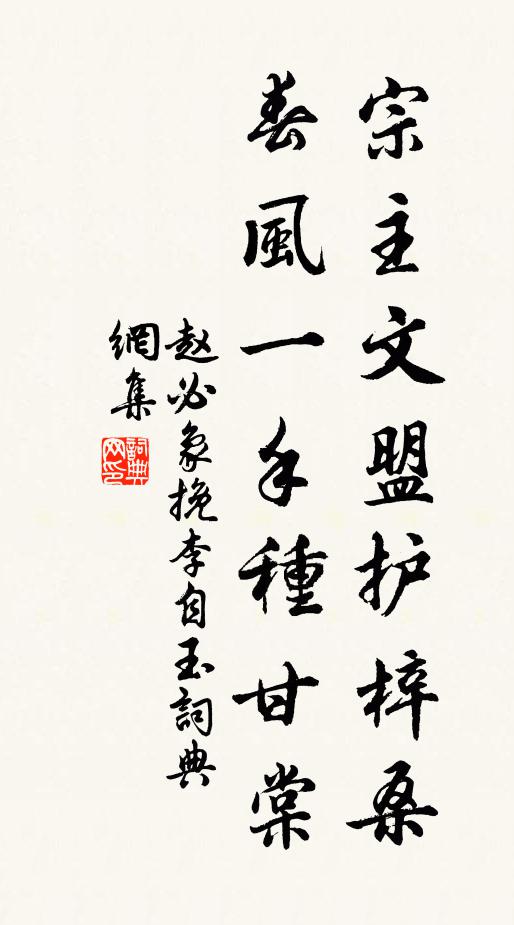 宗主文盟护梓桑
春風一手種甘棠
赵必象挽李自玉詞典
網集
詞典
网印